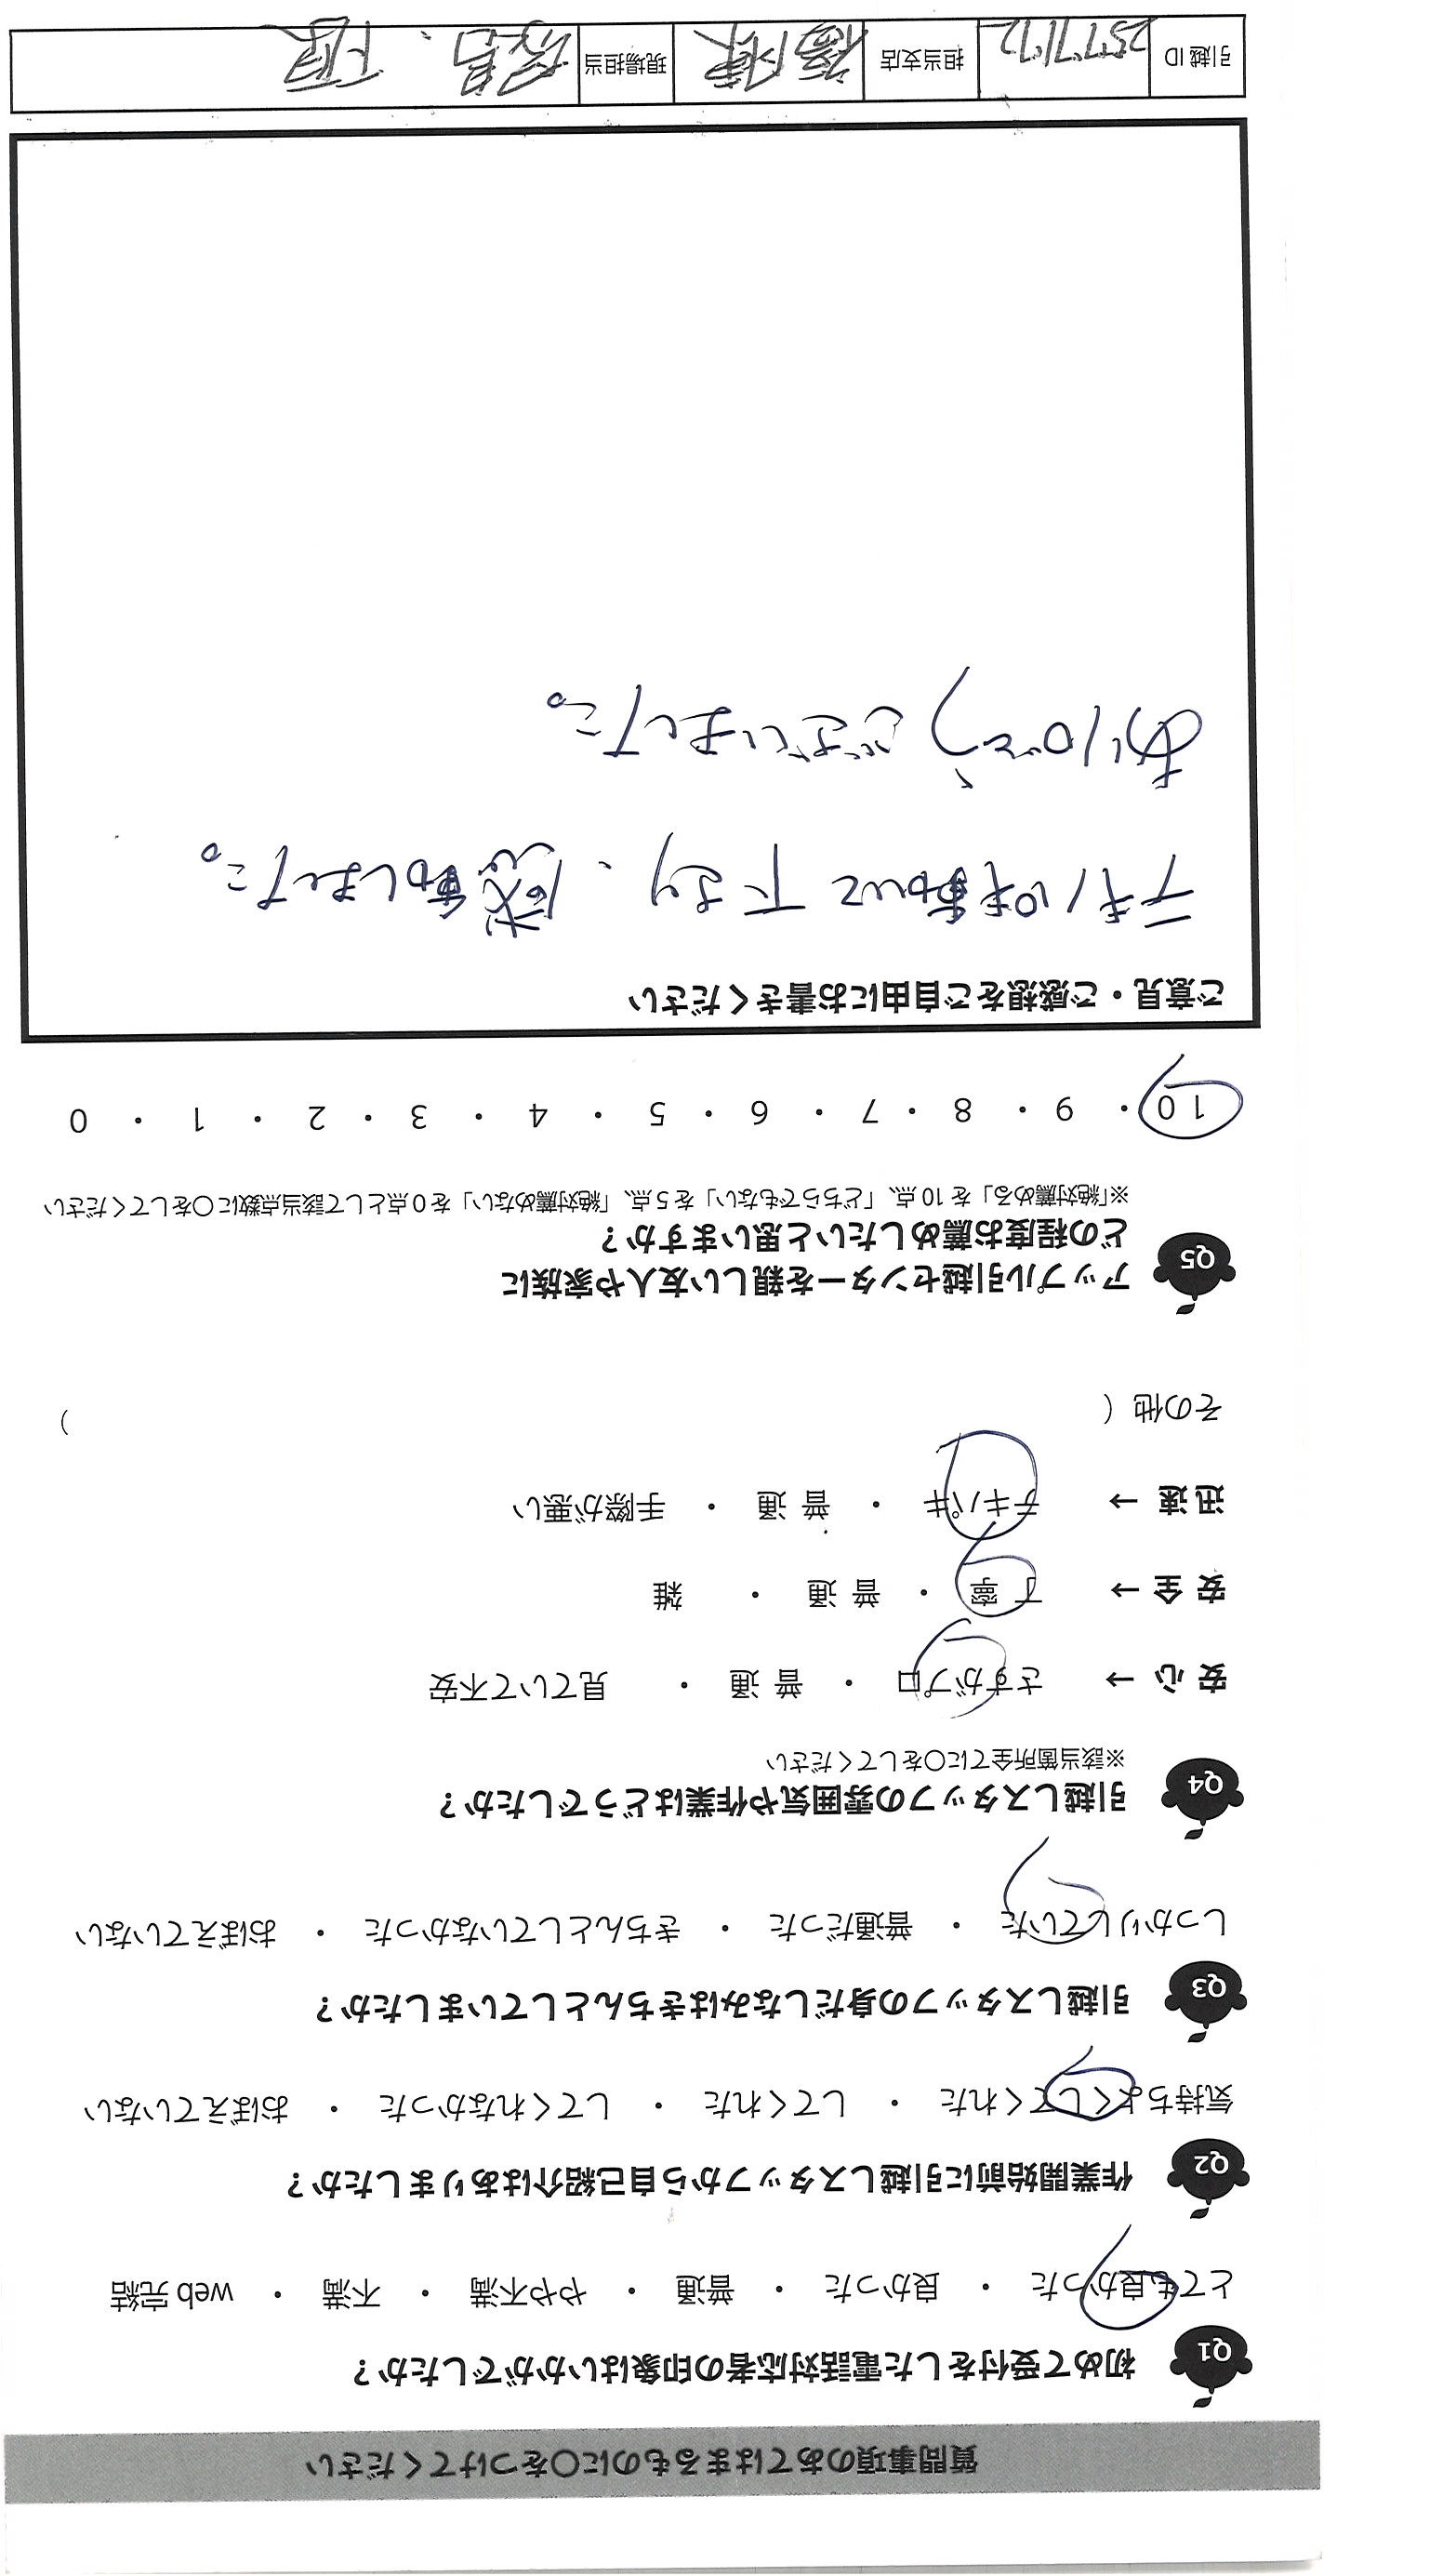 質問事項のあてはまるものに○をつけてください
Q1 初めて受付をした電話対応者の印象はいかがでしたか？
とても良かった ・ 良かった ・ 普通 ・ やや不満 ・ 不満 ・ web 完結
Q2 作業開始前に引越しスタッフから自己紹介はありましたか？
気持ちよくしてくれた ・ してくれた ・ してくれなかった ・ おぼえていない
Q3 引越しスタッフの身だしなみはきちんとしていましたか？
しっかりしていた ・ 普通だった ・ きちんとしていなかった ・ おぼえていない
Q4 引越しスタッフの雰囲気や作業はどうでしたか？
※該当箇所全てに○をしてください
安 心 → さすがプロ ・ 普 通 ・ 見ていて不安
安 全 → 丁 寧 ・ 普 通 ・ 雑
迅 速 → テキパキ ・ 普 通 ・ 手際が悪い
その他（ ）
Q5 アップル引越センターを親しい友人や家族に
どの程度お薦めしたいと思いますか？
※「絶対薦める」を 10 点、「どちらでもない」を 5 点、「絶対薦めない」を 0 点として該当点数に○をしてください
10 ・ 9 ・ 8 ・ 7 ・ 6 ・ 5 ・ 4 ・ 3 ・ 2 ・ 1 ・ 0
ご意見・ご感想をご自由にお書きください
テキパキ動いて下さり、感動しました。
ありがとうございました。
引越 ID 2577172 担当支店 現場担当